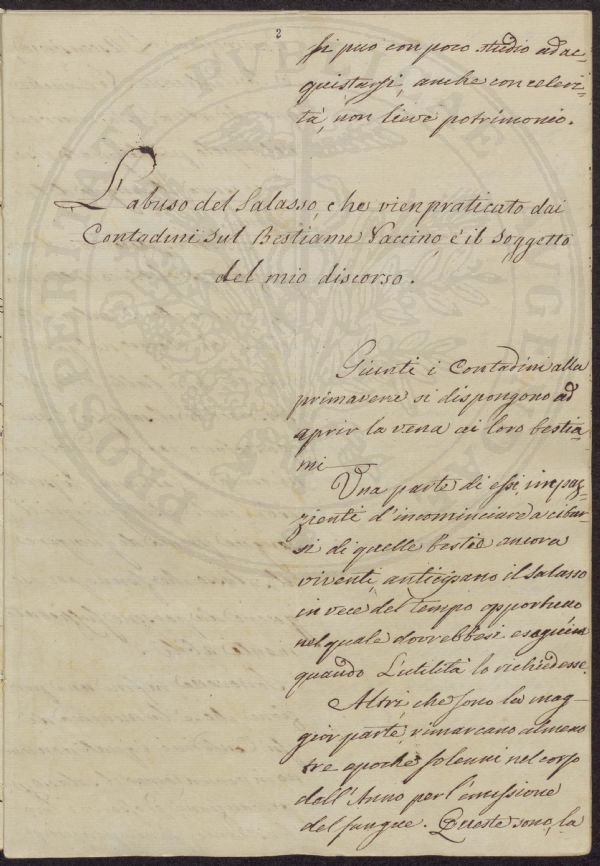 2
si può con poco studio ad ac-
quistarsi, anche con celeri-
tà, non lieve patrimonio.
L'abuso del Salasso, che vien praticato dai
Contadini sul Bestiame Vaccino, è il soggetto
del mio discorso.
Giunti i Contadini alla
primavera si dispongono ad
aprir la vena ai loro bestia-
mi
Una parte di essi, impaz-
zienti d'incominciare a cibar-
si di quelle bestie ancora
viventi, anticipano il salasso
in vece del tempo opportuno
nel quale dovrebbesi eseguire
quando l'utilità lo richiedesse.
Altri, che sono la mag-
gior parte, rimarcano almeno
tre epoche solenni nel corso
dell'Anno per l'emissione
del sangue. Queste sono, la
PROSPERITATI PUBLICAE AUGENDAE